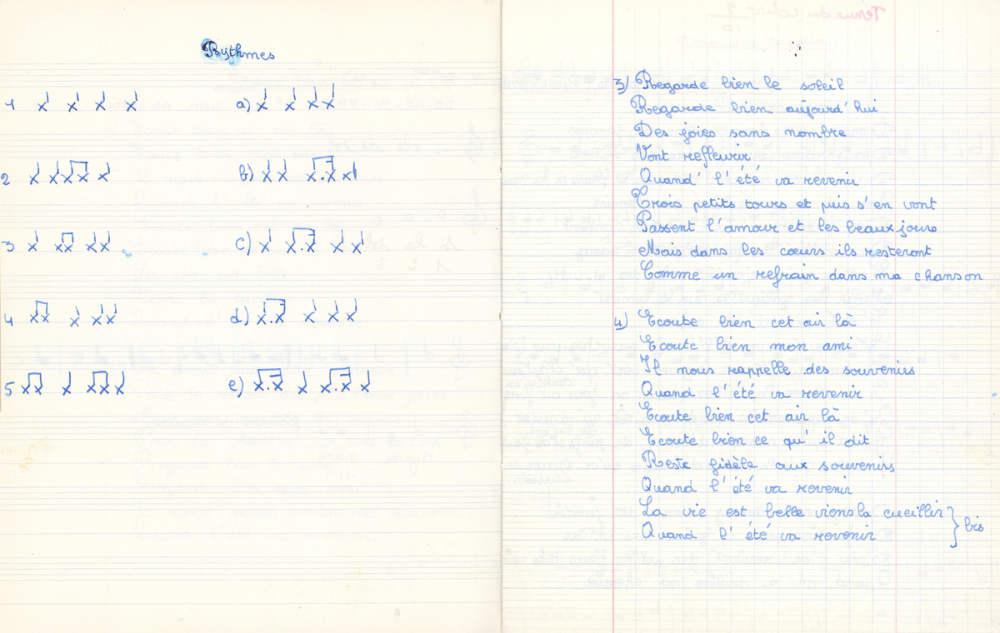 Rythmes
1
a)
2
b)
3
c)
4
d)
5
e)
3) Regarde bien le soleil
Regarde bien aujourd'hui
Des joies sans nombre
Vont refleurir
Quand l'été va revenir
Trois petits tours et puis s'en vont
Passent l'amour et les beaux jours
Mais dans les cœurs ils resteront
Comme un refrain dans ma chanson
4) Ecoute bien cet air là
Ecoute bien mon ami
Il nous rappelle des souvenirs
Quand l'été va revenir
Ecoute bien cet air là
Ecoute bien ce qu'il dit
Reste fidèle aux souvenirs
Quand l'été va revenir
La vie est belle viens la cueillir
Quand l'été va revenir } bis